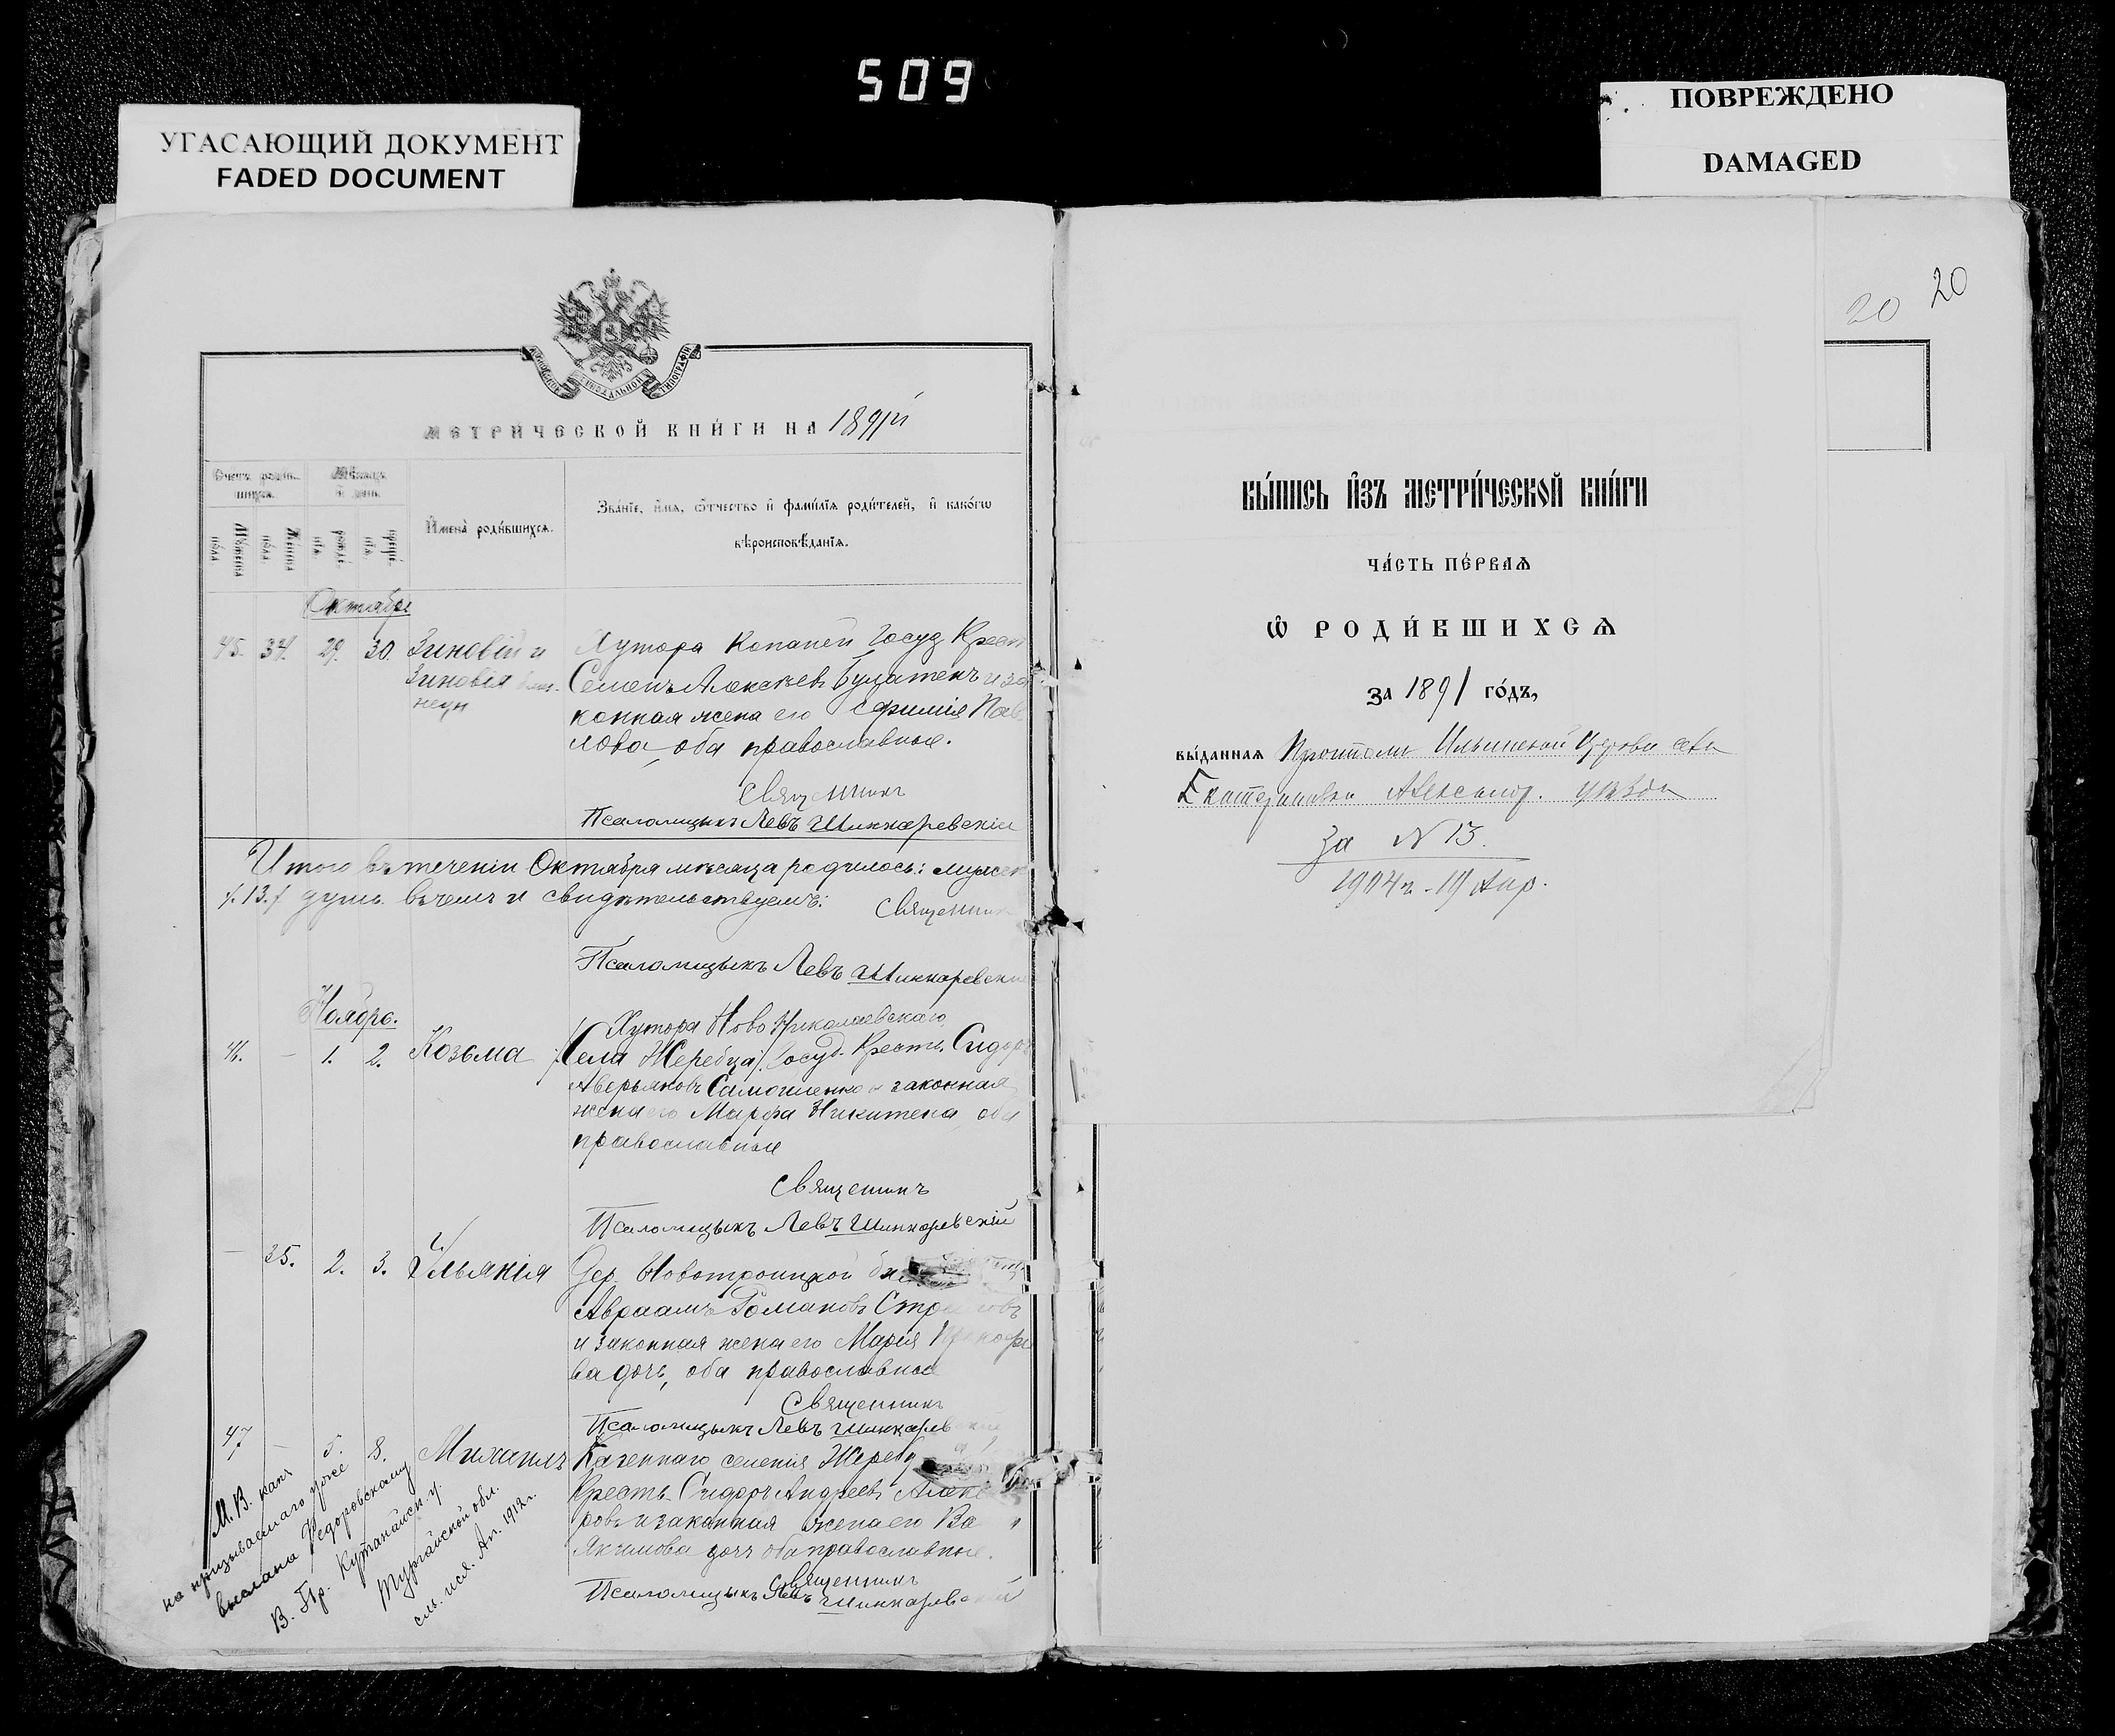 509
УГАСАЮЩИЙ ДОКУМЕНТ
FADED DOCUMENT
ПОВРЕЖДЕНО
DAMAGED
20 20
МЕТРИЧЕСКОЙ КНИГИ НА 1891й
Счетъ родив-
шихся.
Мѣсяцъ
и день.
Мужеска
пола
Женска
пола
рожде-
нія
креще-
нія
Имена родившихся.
Званіе, имя, отчество и фамилія родителей, и какого
вѣроисповѣданія.
Октябрь
45. 34. 29. 30. Зиновій и Хутора Копаней Госуд. Крест
Зиновія Семенъ Алексѣевъ и за
конная жена его Ефимія Пав
лова, оба православные.
Священникъ
Псаломщикъ Левъ Шинкаревскій
Итого въ теченіи Октября мѣсяца родилось: мужск
/.13./ душъ. въ чемъ и свидѣтельствуемъ:
Священник
Псаломщикъ Левъ Шинкаревски
Ноябрь.
Хутора Ново Николаевскаго
46. – 1. 2. Козьма /Села Жеребца/. Госуд. Крестн. Сидоръ
Аверьяновъ Самойленко и законная
жена его Марфа Никитена, оба
православные
Священникъ
Псаломщикъ Левъ Шинкаревскій
– 35. 2. 3. Ульянія Дер. Новотроицкой
Авраамъ Романовъ
и законная жена его Марія
ва дочь, оба православные
Священникъ
Псаломщикъ Левъ Шинкарев
47 – 5. 8. Михаилъ Казеннаго селенія Жереб
Крестн. Сидоръ Андреевъ
ровъ и законная жена его Ва
Якимова дочь оба православные.
Священникъ
Псаломщикъ Левъ Шинкаревскій
М. В. кап
на призываемаго уже
выслана Федоровскому
В. Пр. Кутанайск. у.
Тургайской обл.
см. исх. Ап. 1912 г.
ВЫПИСЬ ИЗЪ МЕТРИЧЕСКОЙ КНИГИ
ЧАСТЬ ПЕРВАЯ
Ѡ РОДИВШИХСЯ
за 1891 годъ,
выданная Ильинской Церкви села
Екатериновки Александ. уѣзда
за N 13.
1904 г. 19 Апр.